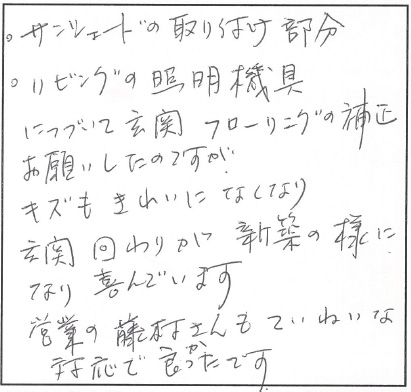 。サンシェードの取り付け部分
。リビングの照明機具
につづいて玄関 フローリングの補正
お願いしたのですが
キズもきれいになくなり
玄関回わりが新築の様に
なり喜んでいます
営業の藤村さんもていねいな
対応で良かったです